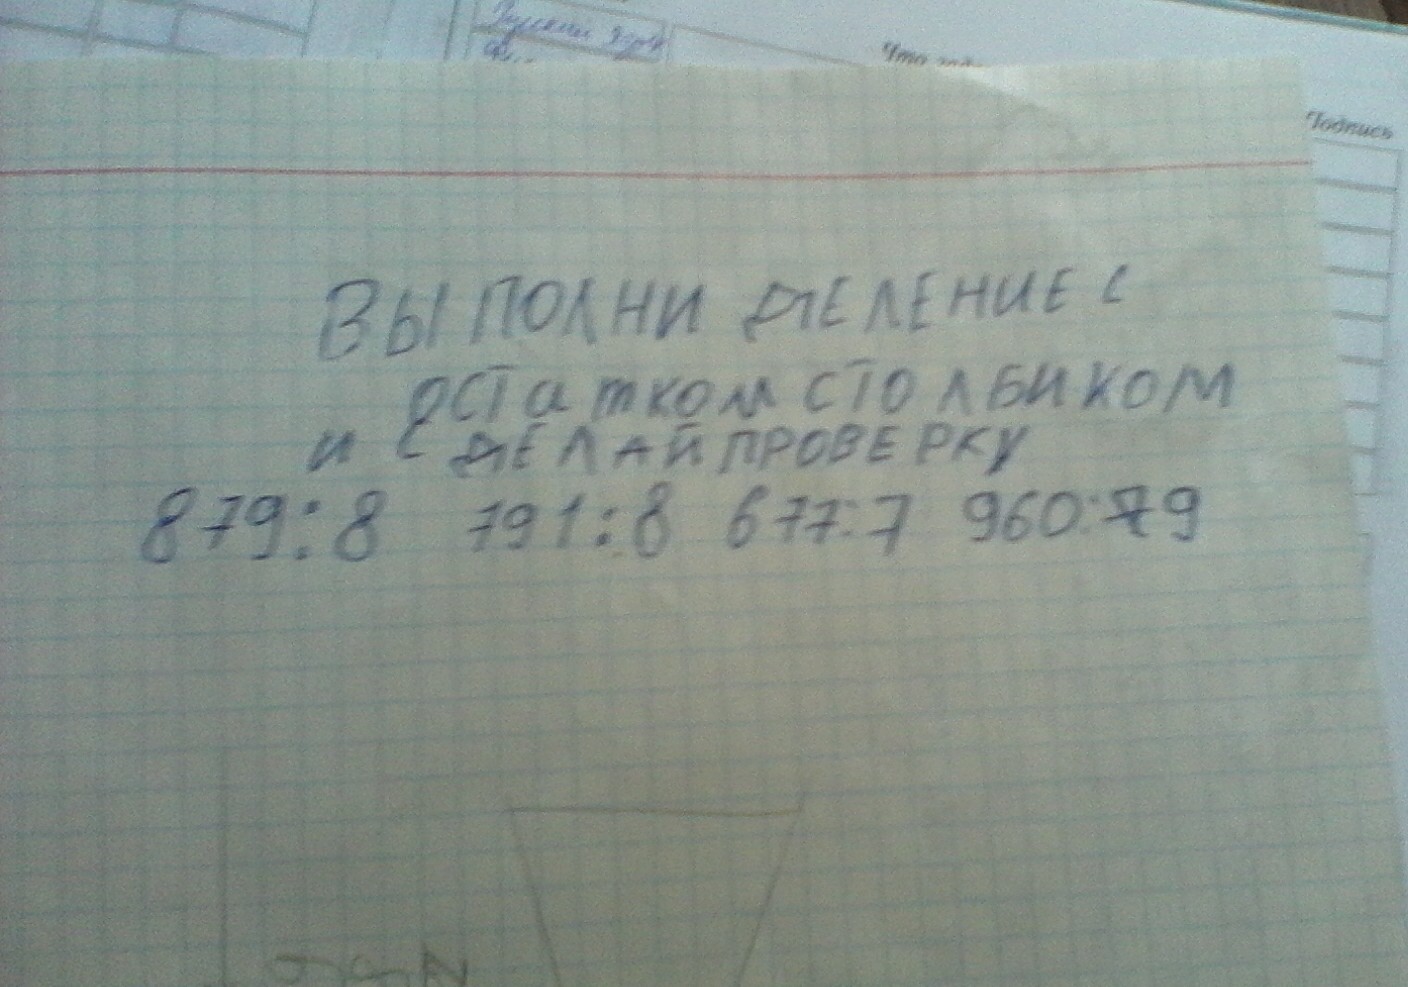 Что
Подпись
ВЫПОЛНИ ДЕЛЕНИЕ С
ОСТаткоМ СТОЛБИКОМ
и СДЕЛАЙ ПРОВЕРКУ
879:8 791:8 677:7 960:9